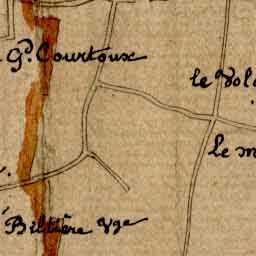 Gd. Courtoux
le Vol
Le m
Biltière Vge